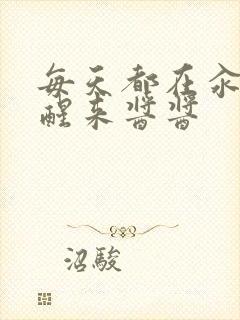 每天都在汆
醒来醬醬
沼駿